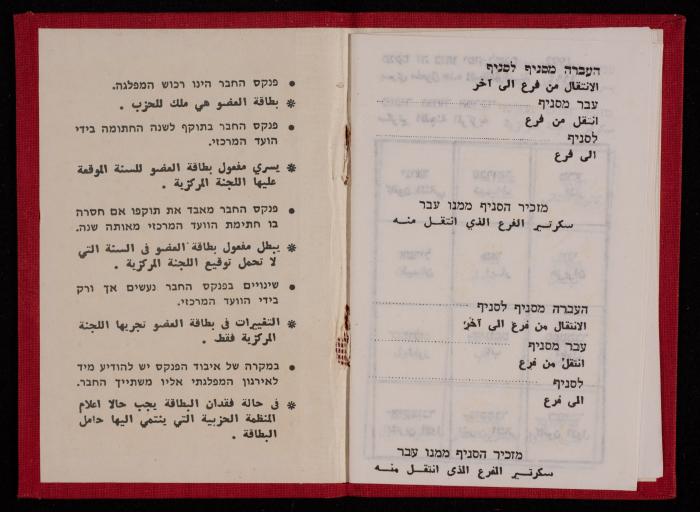 • פנקס החבר הינו רכוש המפלגה.
* بطاقة العضو هي ملك للحزب .
• פנקס החבר בתוקף לשנה החתומה בידי
הועד המרכזי.
* يسري مفعول بطاقة العضو للسنة الموقعة
عليها اللجنة المركزية .
• פנקס החבר מאבד את תוקפו אם חסרה
בו חתימת הוועד המרכזי מאותה שנה.
* يبطل مفعول بطاقة العضو في السنة التي
لا تحمل توقيع اللجنة المركزية .
• שינויים בפנקס החבר נעשים אך ורק
בידי הוועד המרכזי.
* التغييرات في بطاقة العضو تجريها اللجنة
المركزية فقط .
• במקרה של איבוד הפנקס יש להודיע מיד
לאירגון המפלגתי אליו משתייך החבר.
* في حالة فقدان البطاقة يجب حالا اعلام
المنظمة الحزبية التي ينتمي اليها حامل
البطاقة .
העברה מסניף לסניף
الانتقال من فرع الى آخر
עבר מסניף
انتقل من فرع
לסניף
الى فرع
מזכיר הסניף ממנו עבר
سكرتير الفرع الذي انتقل منه
העברה מסניף לסניף
الانتقال من فرع الى آخر
עבר מסניף
انتقل من فرع
לסניף
الى فرع
מזכיר הסניף ממנו עבר
سكرتير الفرع الذي انتقل منه